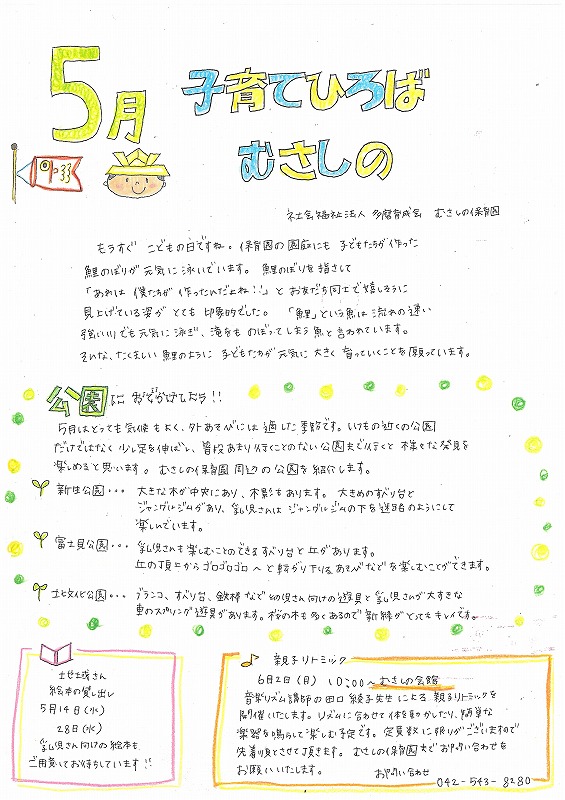 5月 子育てひろば
むさしの
社会福祉法人 多摩育成会 むさしの保育園
もうすぐ こどもの日ですね。保育園の園庭にも 子どもたちが作った
鯉のぼりが元気に泳いでいます。鯉のぼりを指さして
「あれは 僕たちが 作ったんだよね!!」と お友だち同士で嬉しそうに
見上げている姿が とても 印象的でした。「鯉」という魚は 流れの速い
強い川でも元気に泳ぎ、滝をも のぼってしまう魚と言われています。
そんな、たくましい鯉のように 子どもたちが元気に大きく育っていくことを願っています。
公園に おでかけしたら!!
5月はとっても気候もよく、外あそびには適した季節です。いつもの近くの公園
だけではなく 少し足を伸ばし、普段あまり行くことのない公園まで行くと 様々な発見を
楽しめると思います。むさしの保育園 周辺の公園を紹介します。
新生公園・・・ 大きな木が中央にあり、木影もあります。大きめのすべり台と
ジャングルジムがあり、乳児さんは ジャングルジムの下を迷路のようにして
楽しんでいます。
富士見公園・・・ 乳児さんも楽しむことのできる すべり台と丘があります。
丘の頂上からゴロゴロゴロ〜と転がり下りる あそびなどを楽しむことができます。
文化公園・・・ ブランコ、すべり台、鉄棒など 幼児さん向けの遊具と 乳児さんが大すきな
車のスプリング遊具があります。桜の木も多くあるので 新緑がとってもキレイです。
さん
絵本の貸し出し
5月14日(水)
28日(水)
乳児さん向けの絵本も
ご用意してお待ちしています!!
親子リトミック
6月2日(月) 10:00〜むさしの会館
音楽リズム講師の田口 綾子先生による 親子リトミックを
開催いたします。リズムに合わせて体を動かしたり、簡単な
楽器を鳴らして楽しむ予定です。定員数に限りがございますので
先着順とさせて頂きます。むさしの保育園までお問い合わせを
お願いいたします。 お問い合わせ
042-543-8280